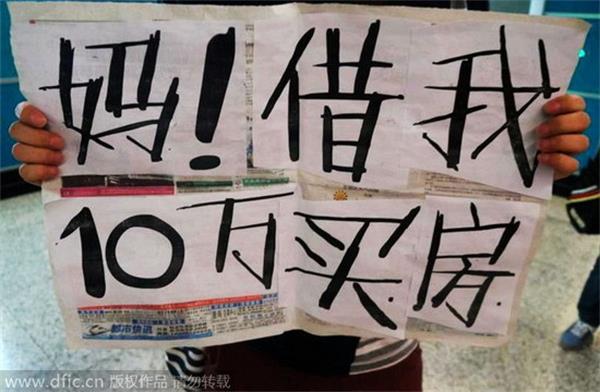 妈!借我
10万买房
都市快讯
www.dfic.cn 版权作品 请勿转载